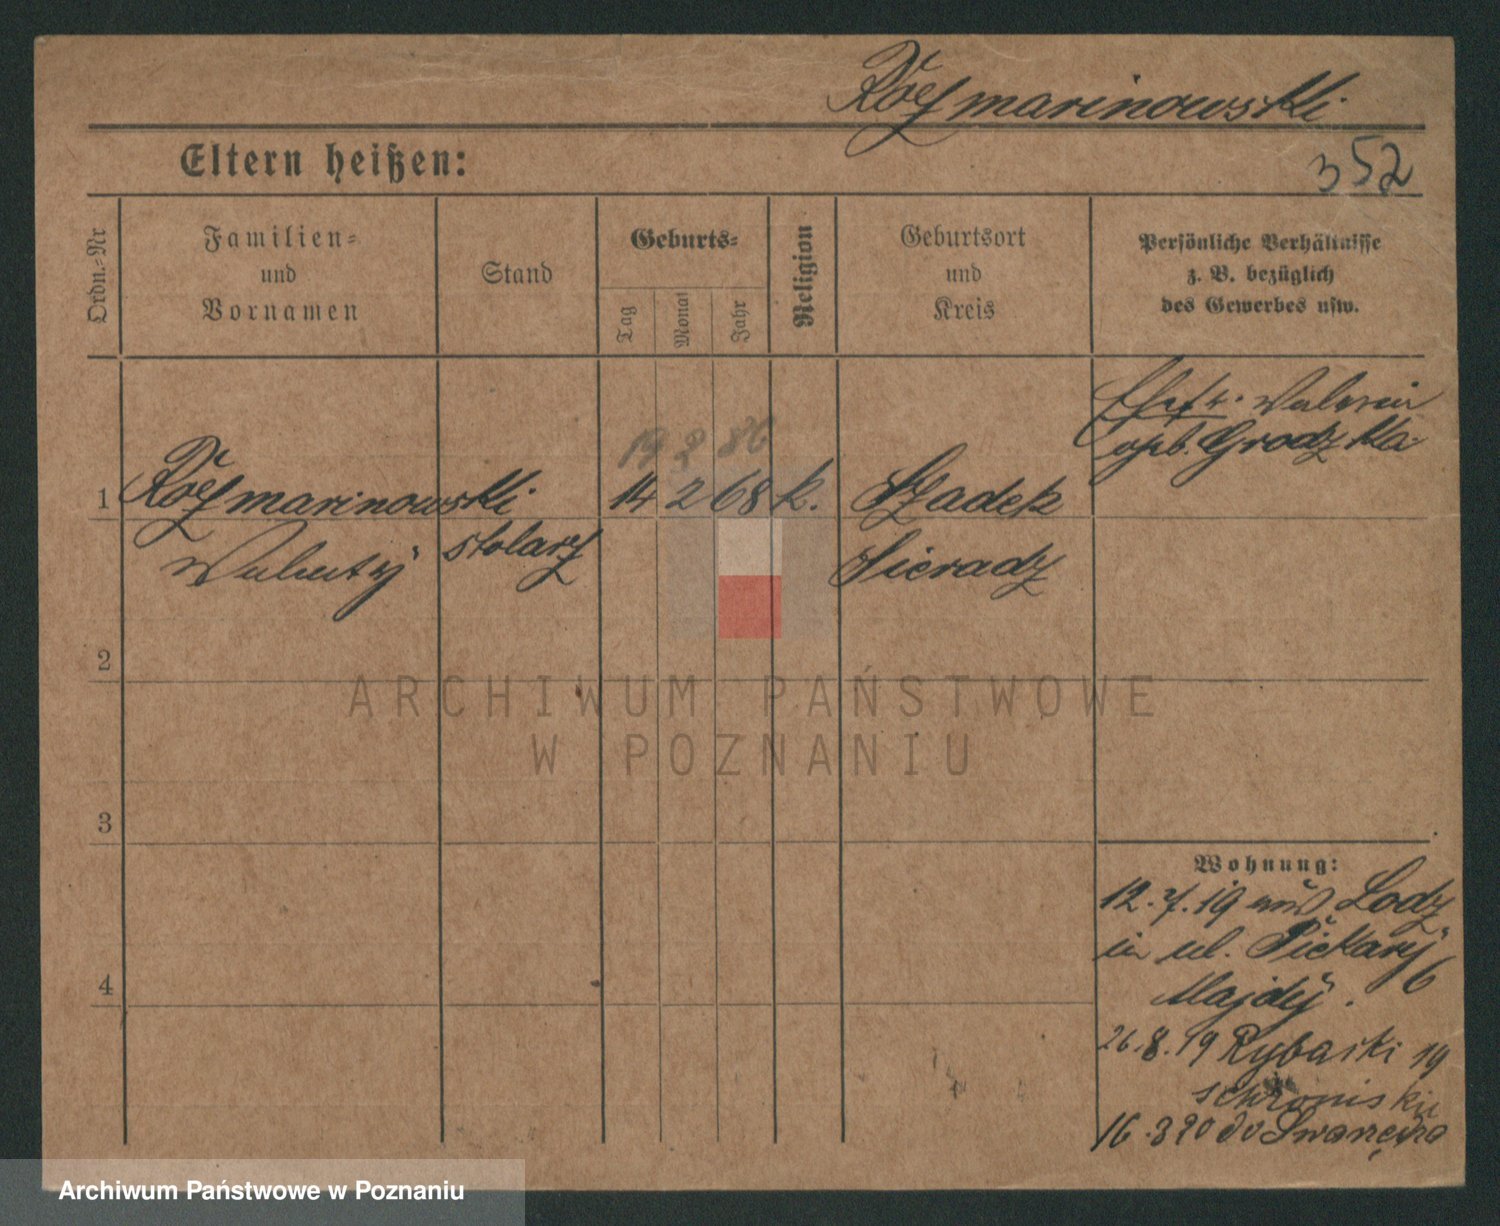 Rozmarinowski
352
Eltern heißen:
Ordn.-Nr
Familien-
und
Vornamen
Stand
Geburts-
Tag
Monat
Jahr
Religion
Geburtsort
und
Kreis
Persönliche Verhältnisse
z. B. bezüglich
des Gewerbes usw.
19 2 86
1
Rozmarinowski
14 2 68 k.
Szadek
Walenty
stolarz
Sieradz
Grodzka
2
3
4
Wohnung:
12.7.19 aus Lodz
in ul. Piekary 6
26.8.19 Rybaki 19
schronisku
16.3 20 do Swarzędza
ARCHIWUM PAŃSTWOWE
W POZNANIU
Archiwum Państwowe w Poznaniu